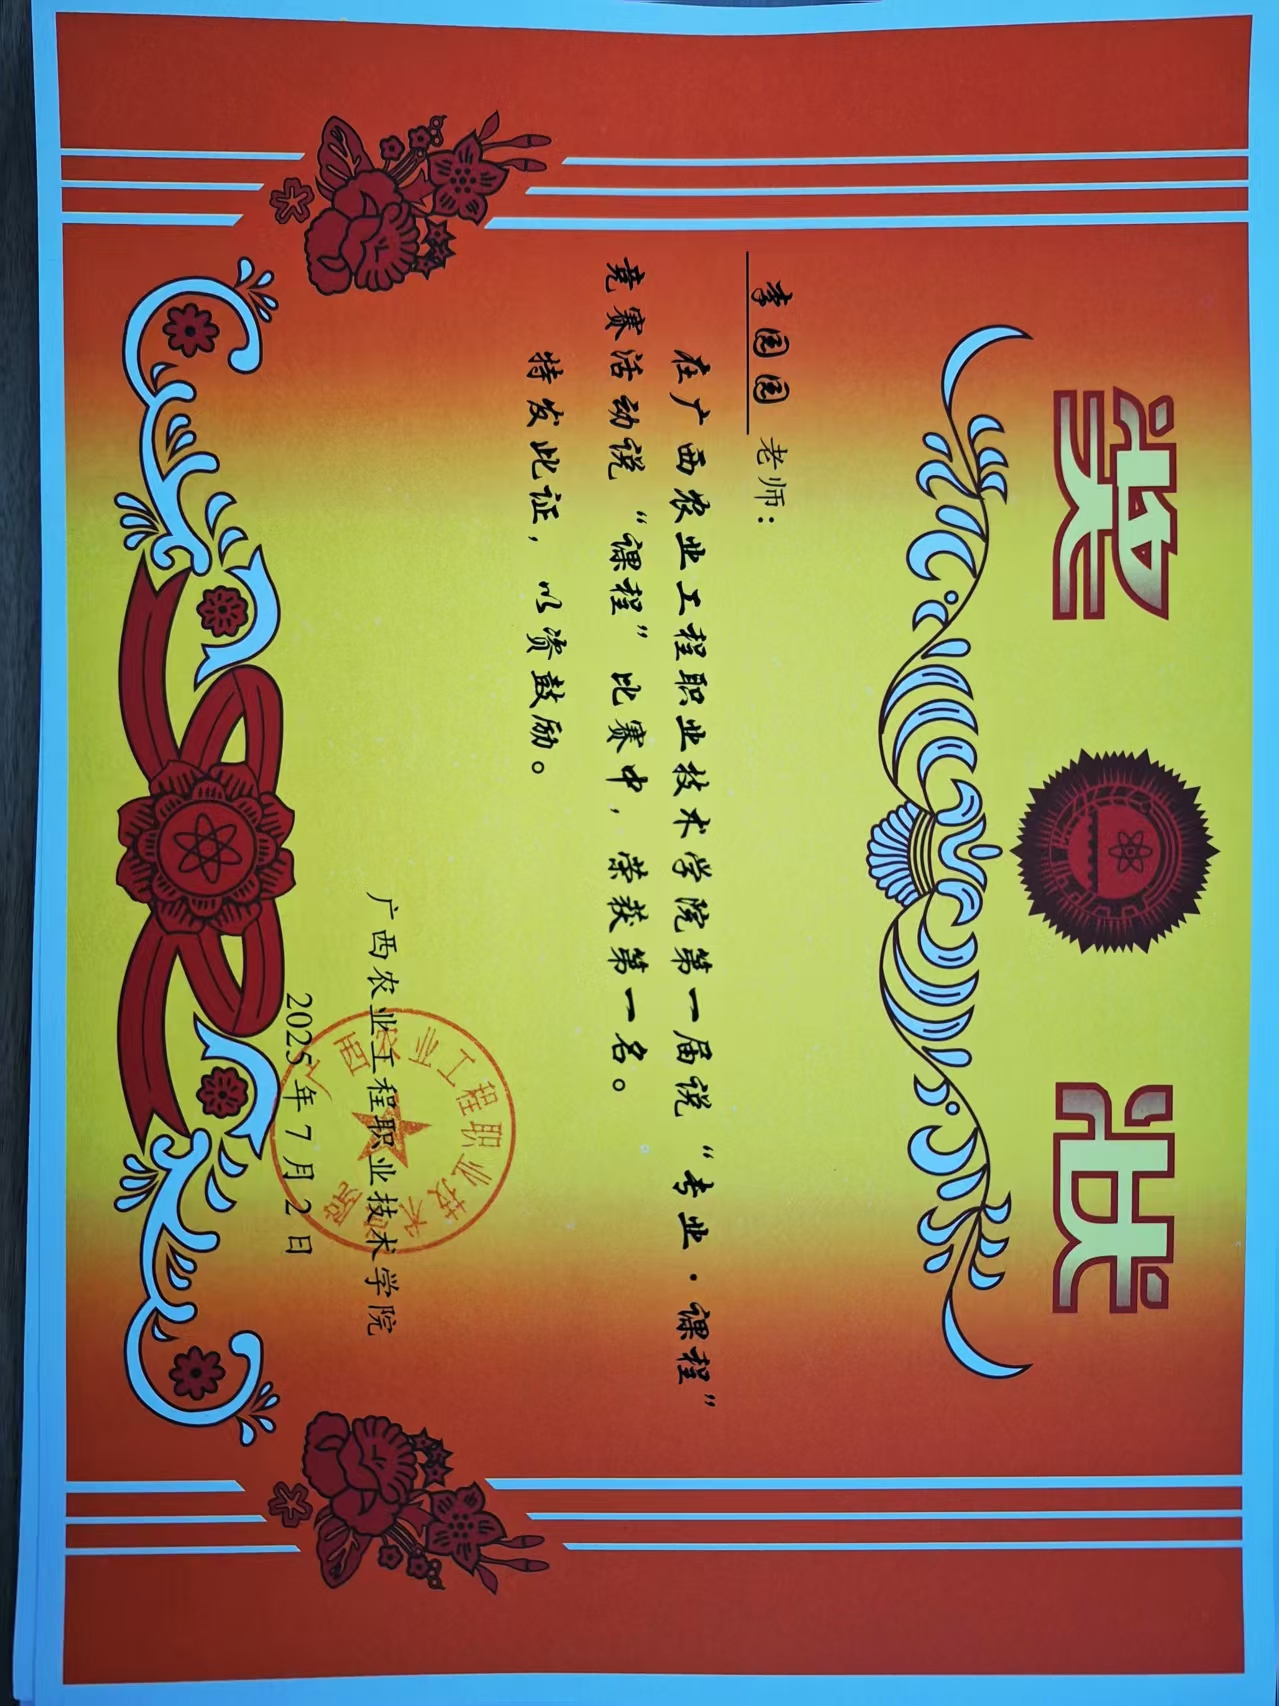 奖 状
李园园 老师：
在广西农业工程职业技术学院第一届说“专业·课程”
竞赛活动说“课程”比赛中，荣获第一名。
特发此证，以资鼓励。
广西农业工程职业技术学院
2025年7月2日
广西农业工程职业技术学院